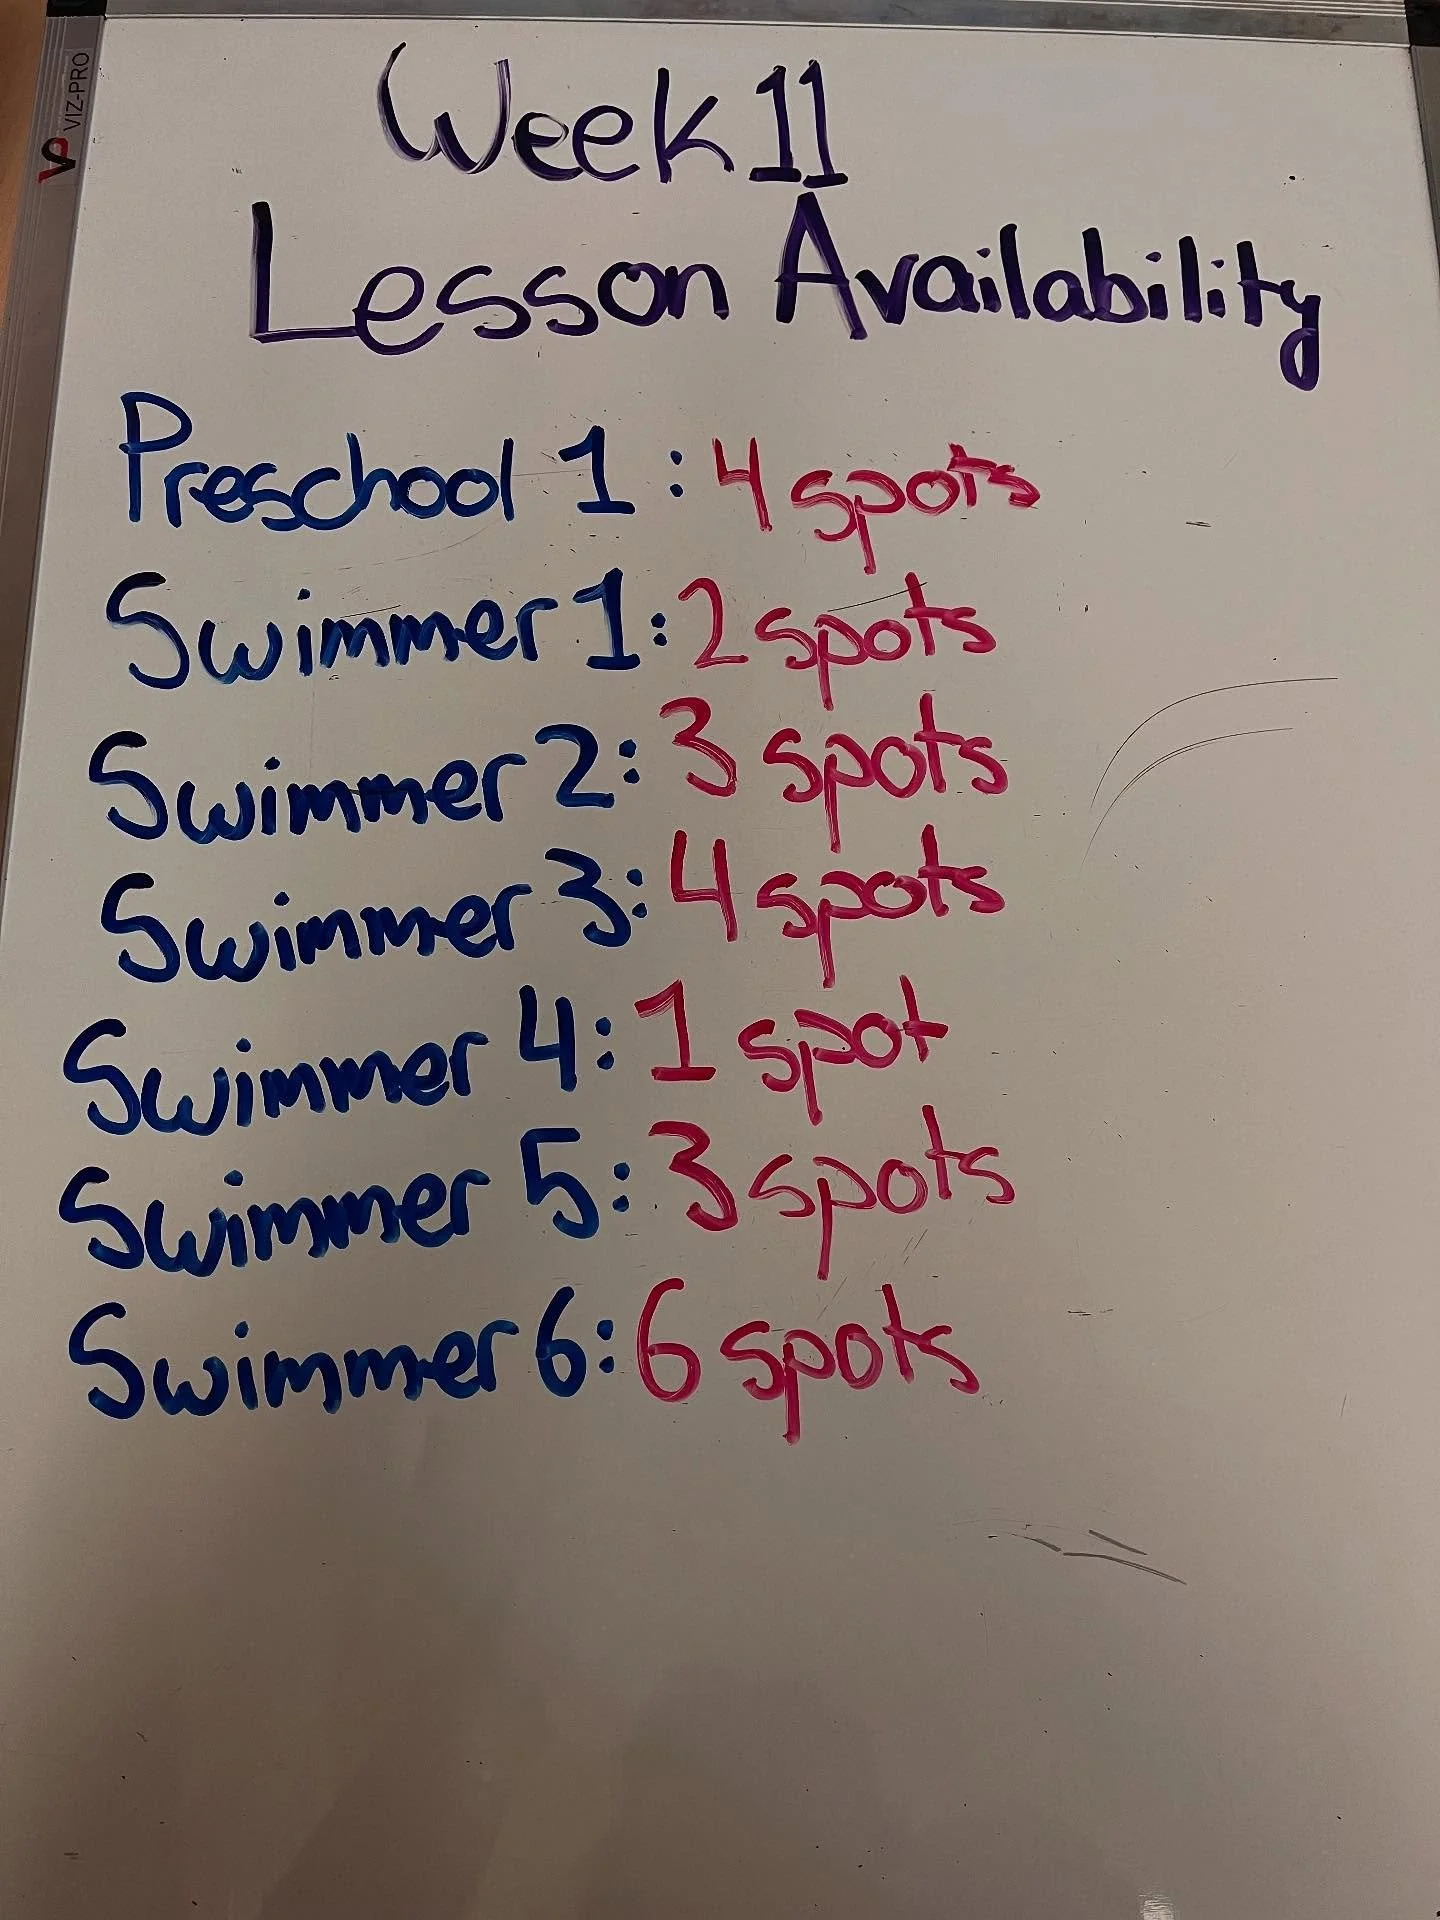 VIZ-PRO
Week 11
Lesson Availability
Preschool 1: 4 spots
Swimmer 1: 2 spots
Swimmer 2: 3 spots
Swimmer 3: 4 spots
Swimmer 4: 1 spot
Swimmer 5: 3 spots
Swimmer 6: 6 spots